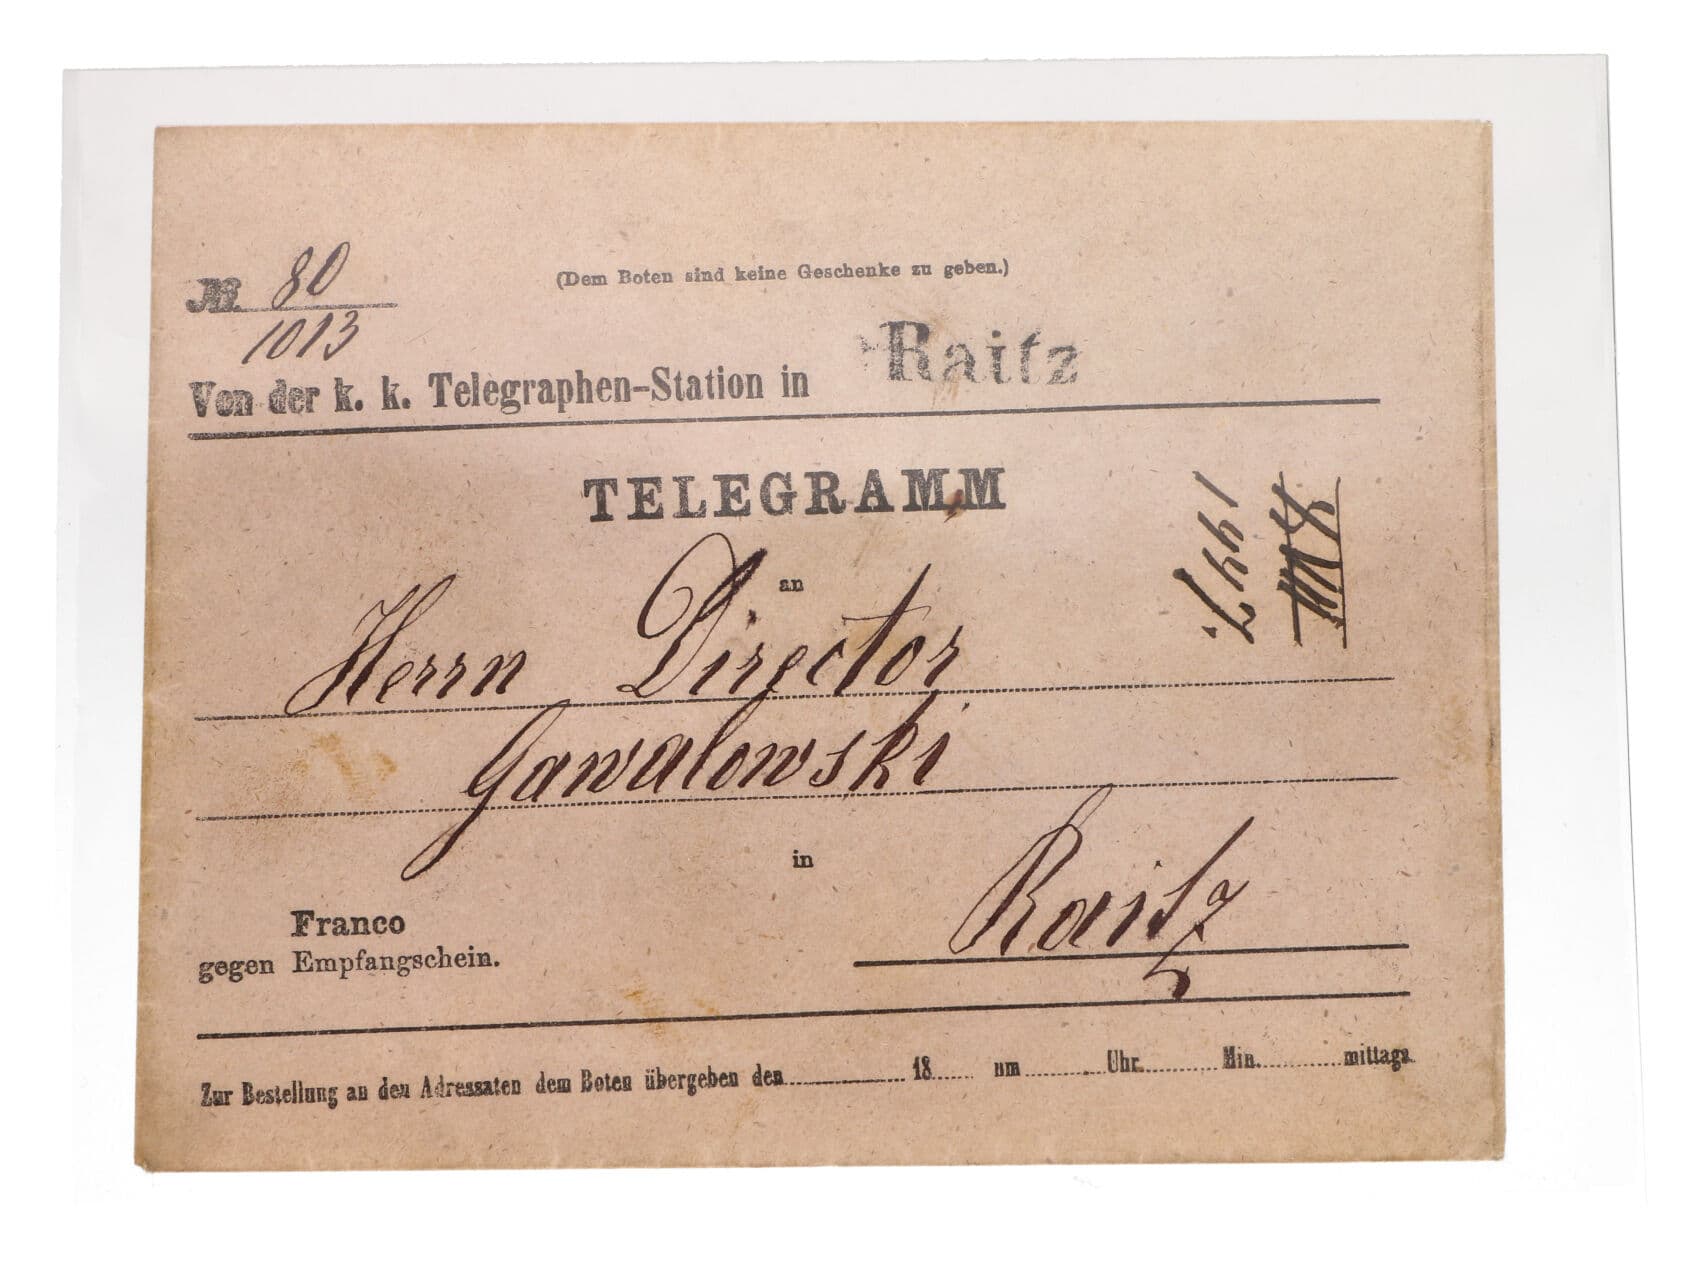 №. 80
1013
(Dem Boten sind keine Geschenke zu geben.)
Von der k. k. Telegraphen-Station in Raitz
TELEGRAMM
an
Herrn Director
Gawalowski
in
Raitz
Franco
gegen Empfangschein.
Zur Bestellung an den Adressaten dem Boten übergeben den 18 um Uhr Min. mittags